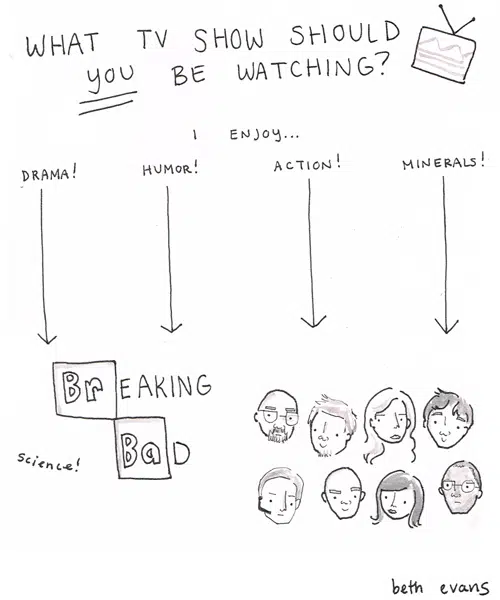 WHAT TV SHOW SHOULD
you BE WATCHING?
I ENJOY...
DRAMA! HUMOR! ACTION! MINERALS!
BrEAKING
BaD
science!
beth evans